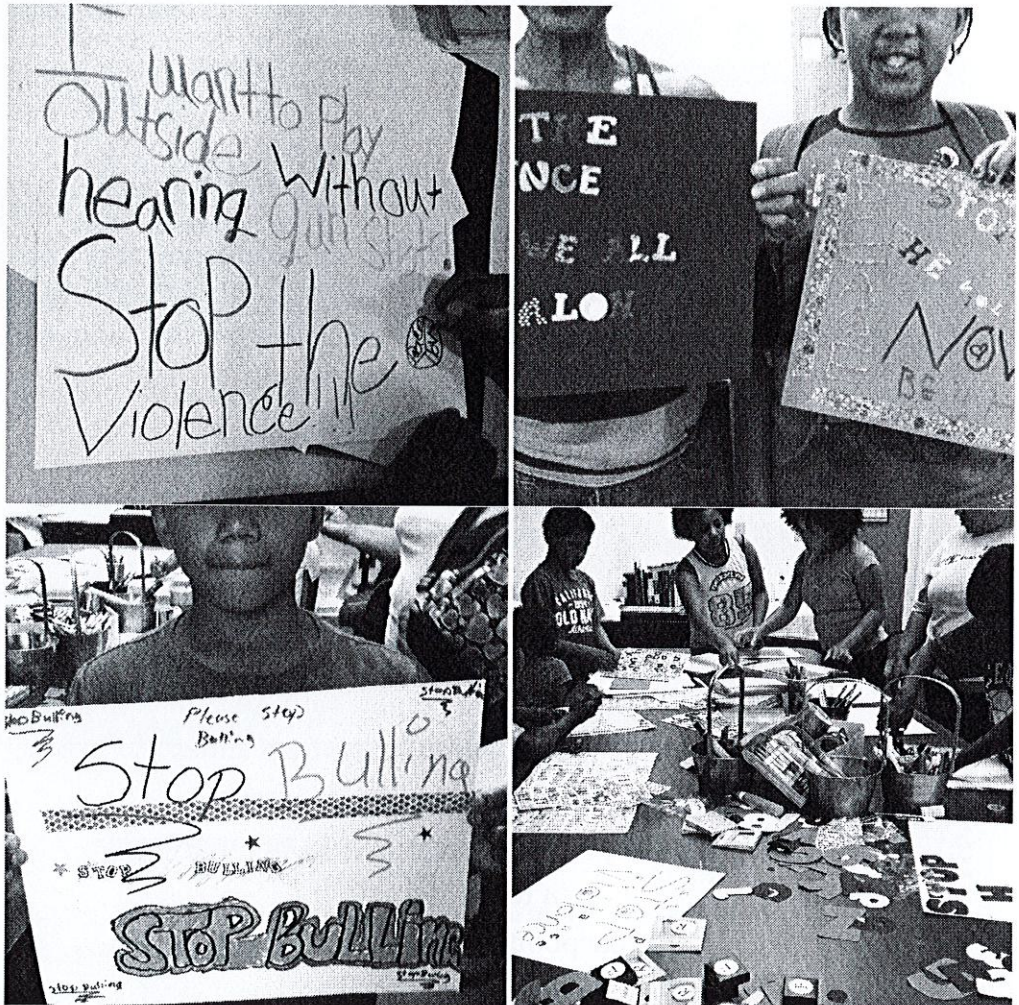 I want to play
outside without
hearing gun shots!
Stop the
Violence!!!
THE
NCE
WE ALL
ALON
STOP
THE
NOW
BE
Stop Bulling
Please Stop
Bulling
Stop Bulling
STOP BULLING
STOP BULLing
Stop Bulling
CALIFORNIA
OLD NA
35
STOP
H